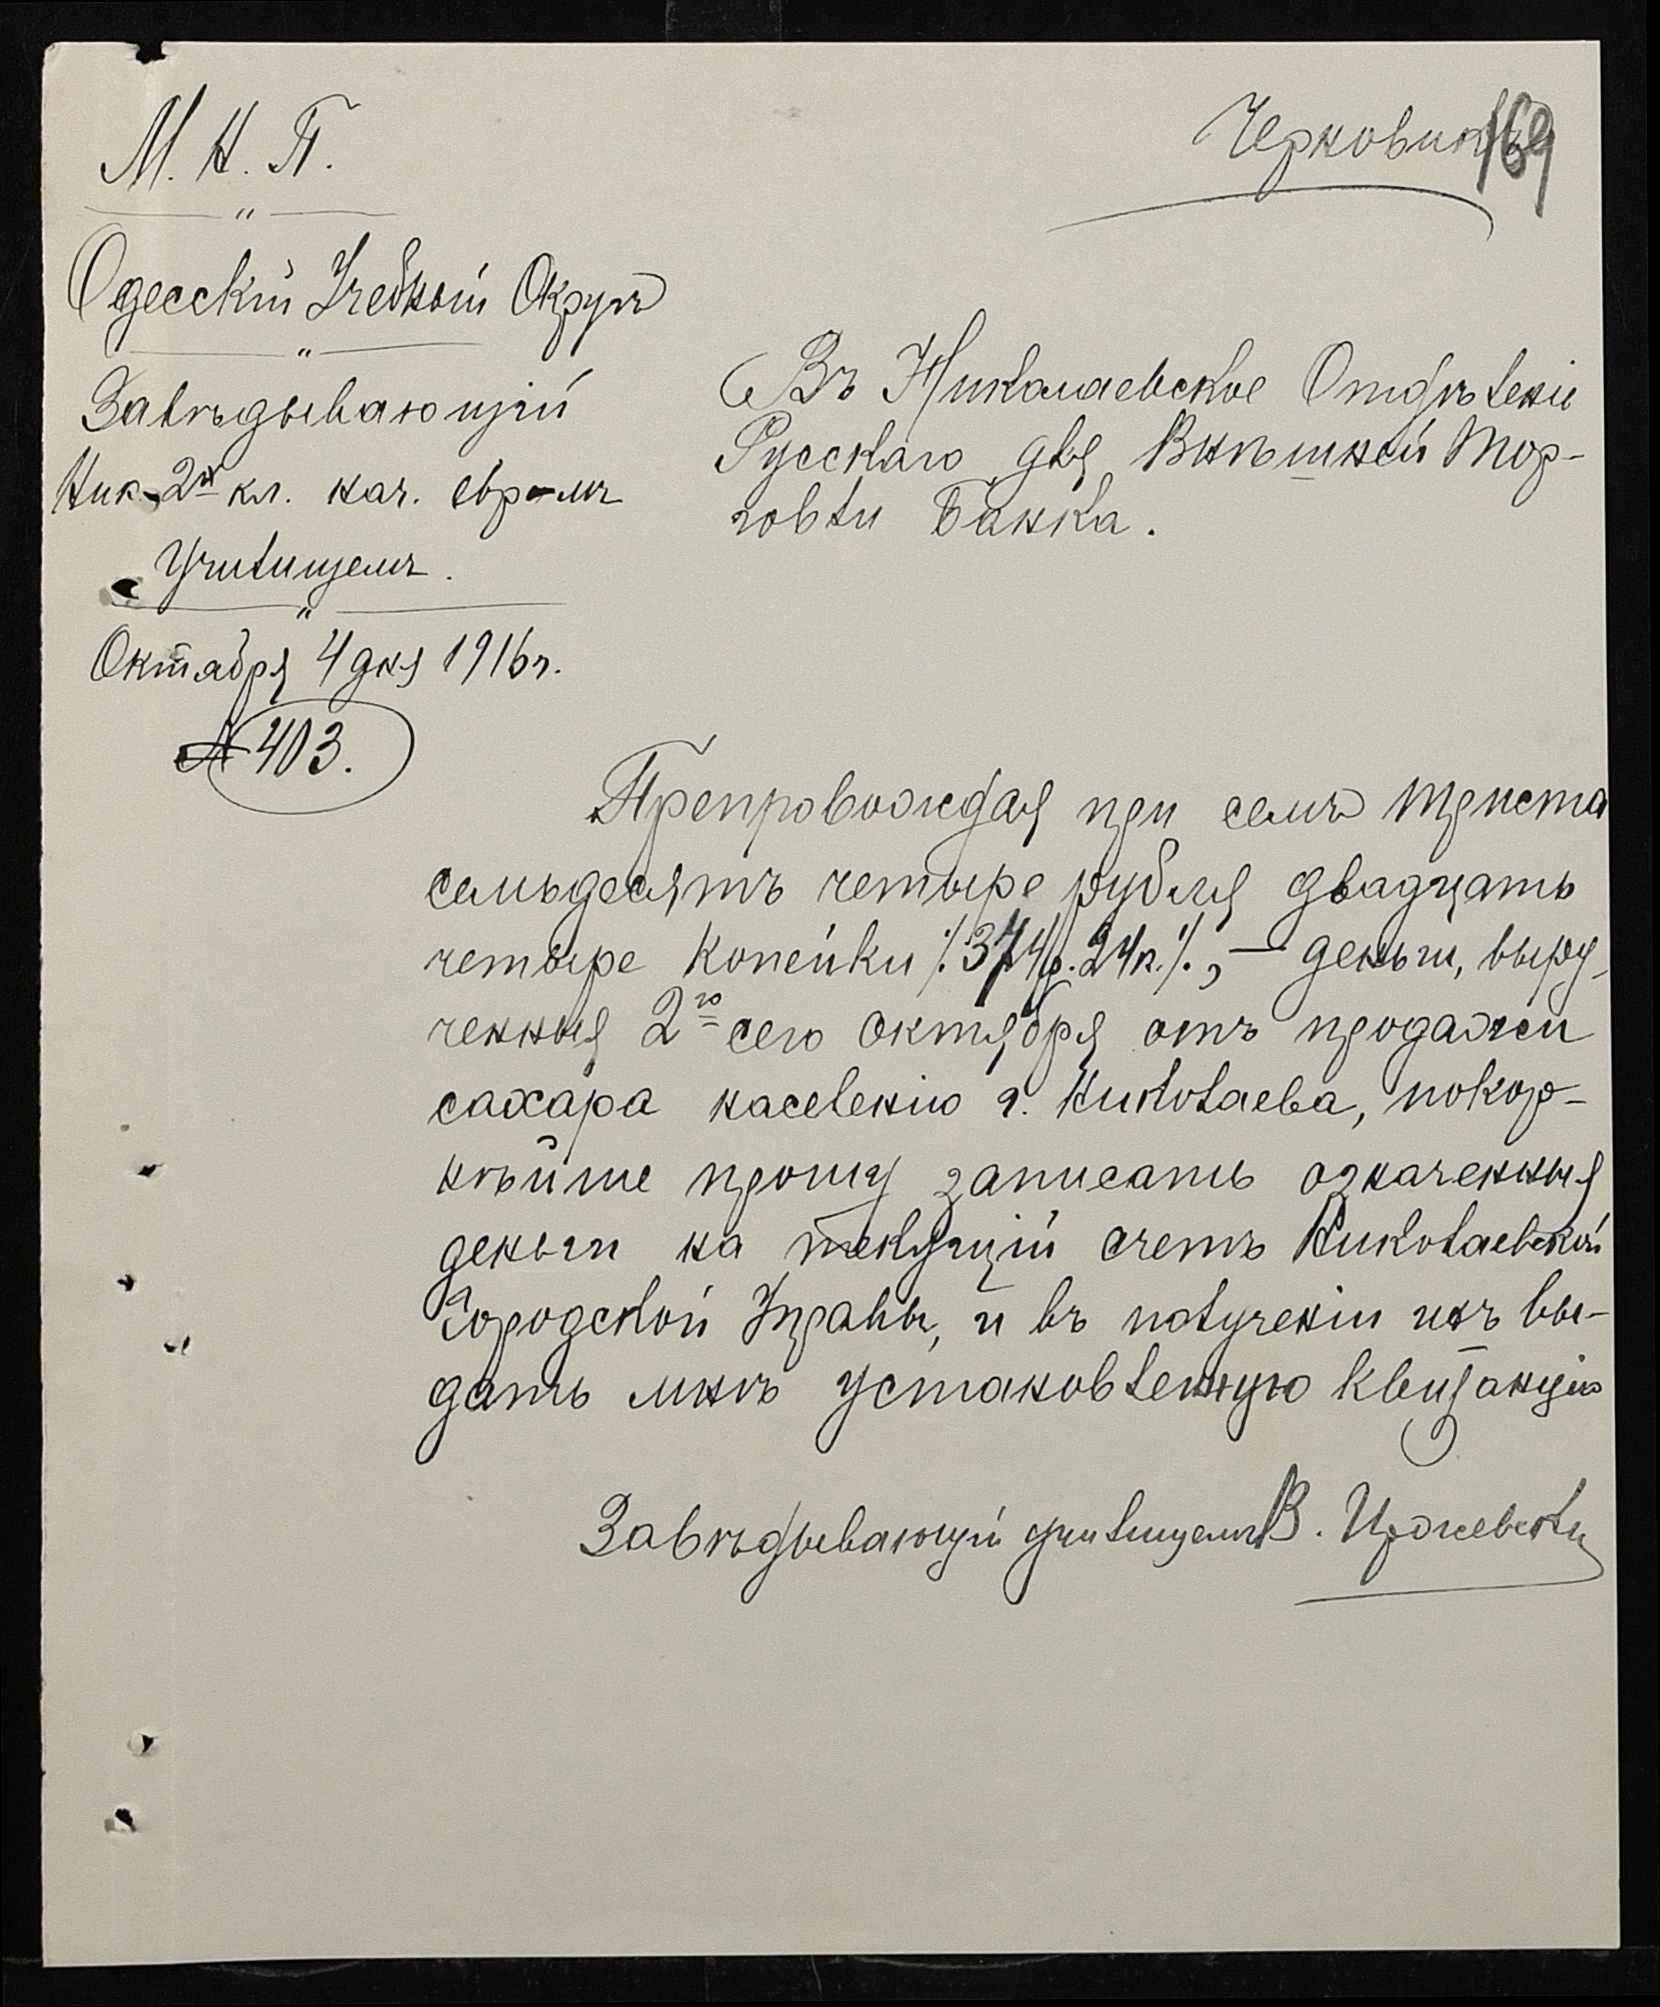 М. Н. П.
Черновикъ
169
Одесскій Учебный Округъ
Завѣдывающій
Ник. 2х кл. нач. евр-мъ
Училищемъ.
Октября 4 дня 1916 г.
№ 403.
Въ Николаевское Отдѣленіе
Русскаго для Внѣшней Тор-
говли Банка.
Препровождая при семъ триста
семьдесятъ четыре рубля двадцать
четыре копейки /.374р.24к./., — деньги, выру-
ченныя 2го сего октября отъ продажи
сахара населенію г. Николаева, покор-
нѣйше прошу записать означенныя
деньги на текущій счетъ Николаевской
Городской Управы, и въ полученіи ихъ вы-
дать мнѣ установленную квитанцію
Завѣдывающій училищемъ В.